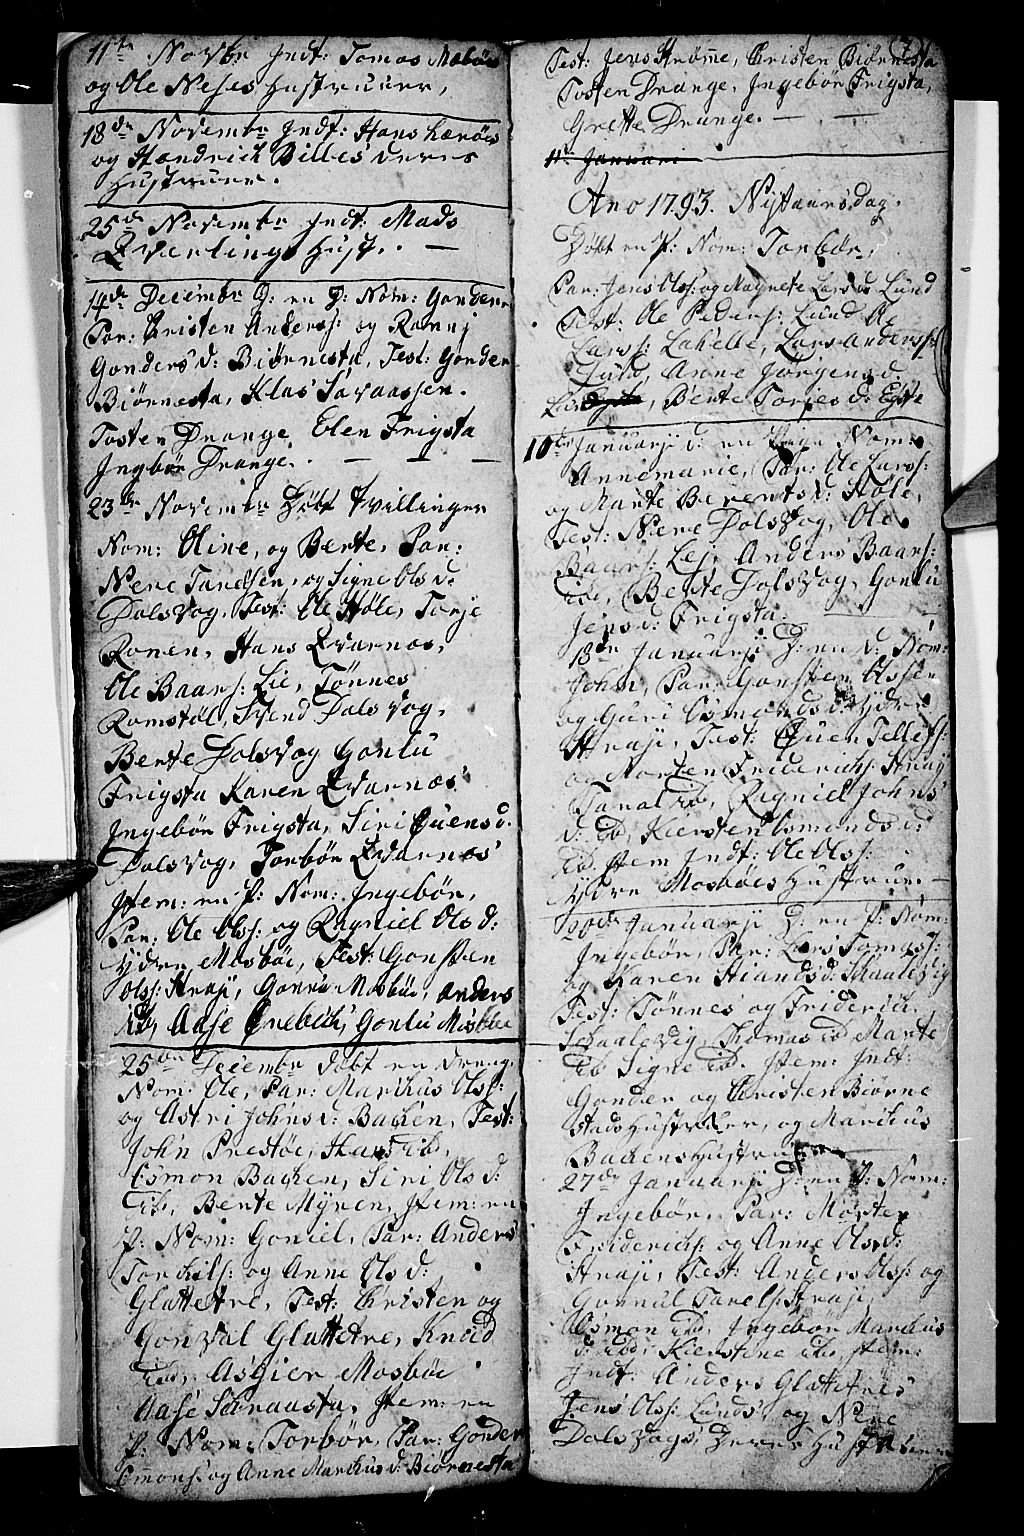 11te Novbr Indt: Tomas Mosbøes
og Ole Neses Hustruuer,
18de Novembr Indt: Hans Lærøes
og Hændrich Billes deres
Hustruer.
25de Novembr Indt: Mads
Qværlings Hust.
14de Decembr D: en D: Nom: Gonder
Par: Cristen Anderss: og Ronnj
Gonders d: Biørnesta, Test: Gonder
Biørnesta, Klas Savaassen.
Tosten Drange, Elen Frigsta
Ingbør Drange.
23de Novembr Døbt Tvillinger
Nom: Oline, og Bente, Par:
Nere Tandsen, og Signe Ols d:
Dolsvog, Test: Ole Høle, Torje
Ronen, Hans Qvarnes,
Ole Baars: Lie, Tønnes
Romstøl, Svend Dolsvog,
Bente Dolsvog Gonlu
Frigsta Karen Qvarnes
Ingebør Frigsta, Siri Ouens d.
Dolsvog, Torbør Qvarnes
Item: en P: Nom: Ingebør,
Par: Ole Olss: og Ragniel Ols d:
Ydre Mosbøe, Test: Gonsten
Olss: Straji, Gonnør Mosbøe, Anders
ib, Aase Gonlu Mosbøe
25de Decembr døbt en dreng.
Nom: Ole, Par: Marchus Olss:
og Astri Johns d: Bachen, Test:
John Prestøe, Hans ib,
Osmon Bachen, Siri Ols d:
ib, Bente Myren, Item: en
P: Nom: Goniel, Par: Anders
Torchils: og Anne Ols d:
Glattetre, Test: Christen og
Gonval Glattetre, Knud
ibd, Asgier Mosbøe
Aase Item: en
P: Nom: Torbør, Par: Gonder
Omons: og Anne Marchus d: Biørnesta
7
Test: Jens Strømme, Cristen Biørnesta
Tosten Drange, Ingebør Frigsta,
Grette Drange.
11te Januari
Ano 1793. Nytaarsdag.
Døbt en P: Nom: Torbør,
Par: Jens Olss: og Magnete Lars d Lund
Test: Ole Peders: Lund Ole
Larss: Lars Anderss:
Lund, Anne Jørgens d.
Bente Tories d: Egsta
10de Januarji d: en Pige Nom:
Annemarie, Par: Ole Larss:
og Marite Berents d: Høle,
Test: Nere Dolsvog, Ole
Baars: Lej, Anders Baars:
ib, Bente Dolsvog, Gonlu
Jens d: Frigsta
13de Januarji D: en d: Nom:
John, Par: Gonsten Olssen
og Guri Osmonds d: Ydre
Straji, Test: Ouen Tellefs:
og Morten Friderichs: Straj
Taral ib, Ragniel Johns
d: ib, Kiersten Osmonds d:
ib Item Indt: Ole Olss:
Ydre Mosbøes Hustrue.
20de Januarji D: en P: Nom:
Ingebør, Par: Lars Tomass:
og Karen Stiands d: Skaalevig
Test: Tønnes og Friderich
Schaalevig, Thomas ib Marite
ib Signe ib. Item: Indt:
Gonder og Christen Biørne
stads Hustruer, og Marchus
Bachens Hustrue
27de Januarji D: en P: Nom:
Ingebør, Par: Morten
Friderichs: og Anne Ols d:
Straji, Test: Anders Olss: og
Gonnul Tarels: Straji,
Osmon ib, Ingebør Marchus
d: ib, Kierstene ib, Item:
Indt: Anders Glattetres
Jens Olss: Lunds, og Nere
Dolsvogs, Deres Hustruer